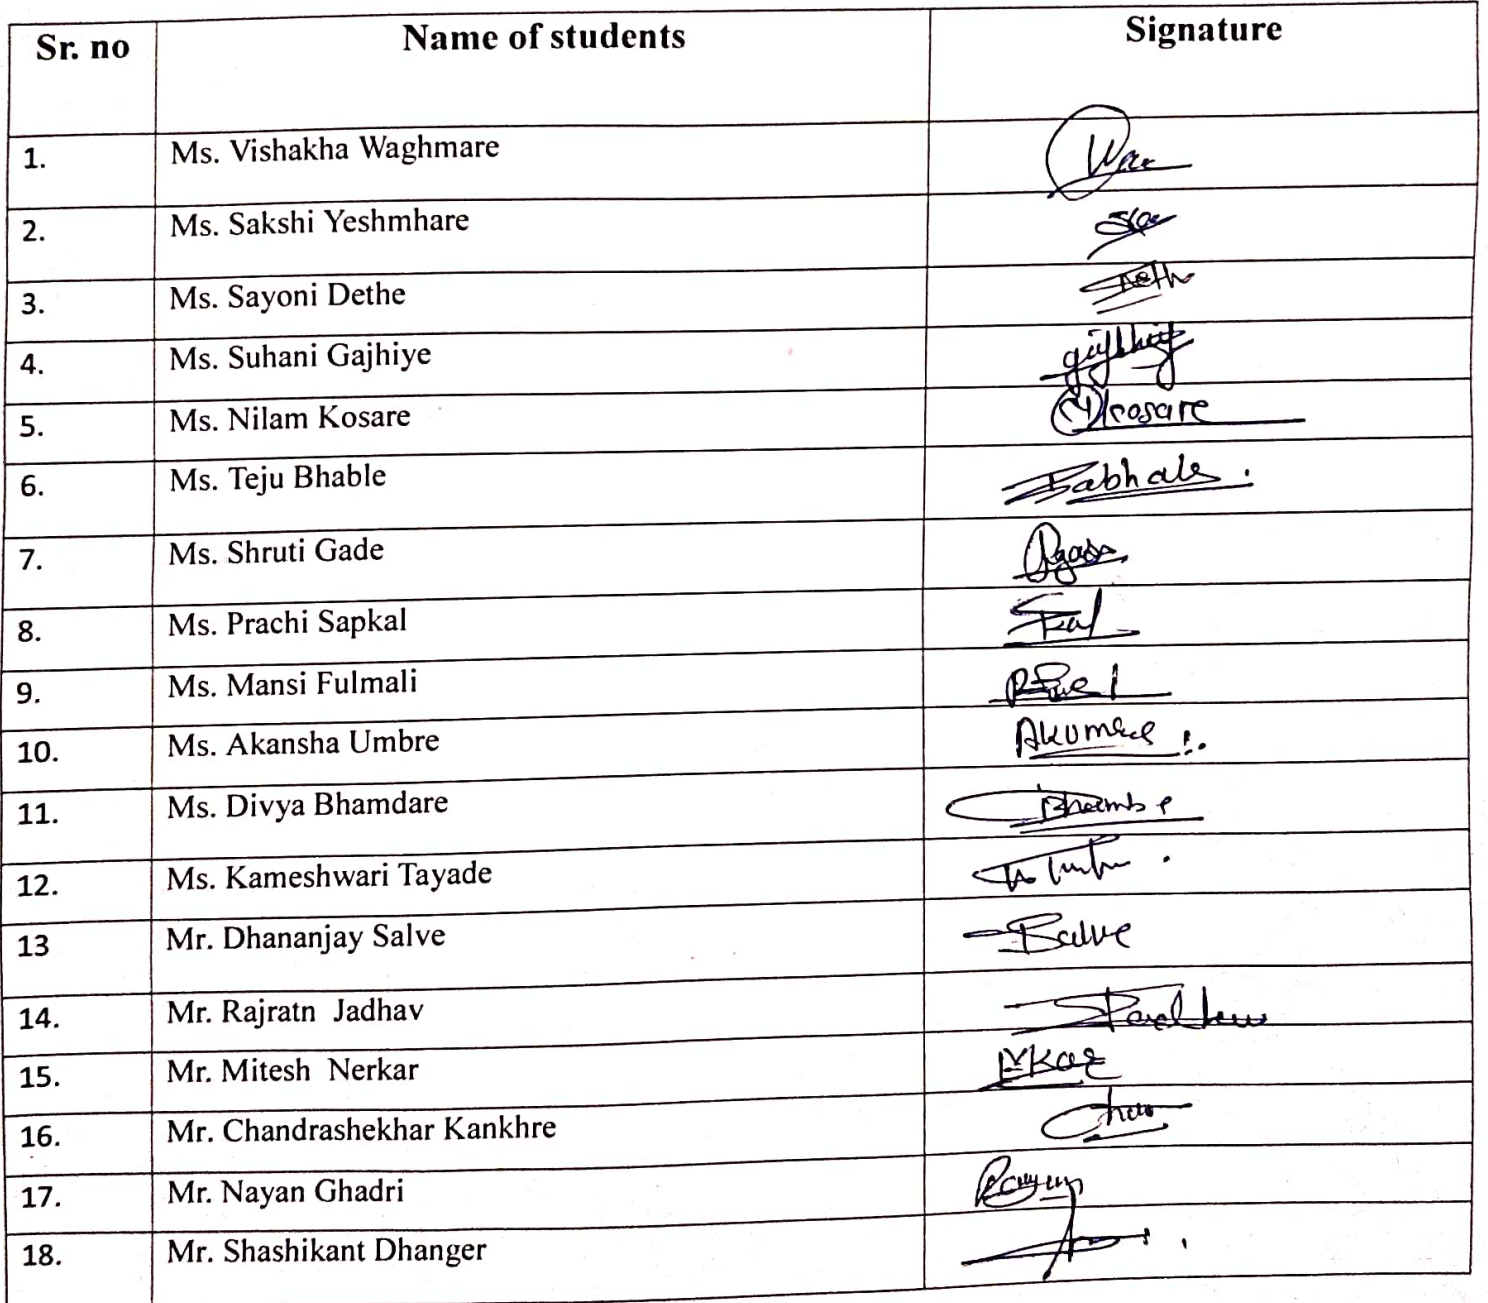 Sr. no Name of students Signature
1. Ms. Vishakha Waghmare
2. Ms. Sakshi Yeshmhare
3. Ms. Sayoni Dethe
4. Ms. Suhani Gajhiye
5. Ms. Nilam Kosare kosare
6. Ms. Teju Bhable
7. Ms. Shruti Gade
8. Ms. Prachi Sapkal
9. Ms. Mansi Fulmali
10. Ms. Akansha Umbre
11. Ms. Divya Bhamdare
12. Ms. Kameshwari Tayade
13 Mr. Dhananjay Salve
14. Mr. Rajratn Jadhav
15. Mr. Mitesh Nerkar
16. Mr. Chandrashekhar Kankhre
17. Mr. Nayan Ghadri
18. Mr. Shashikant Dhanger